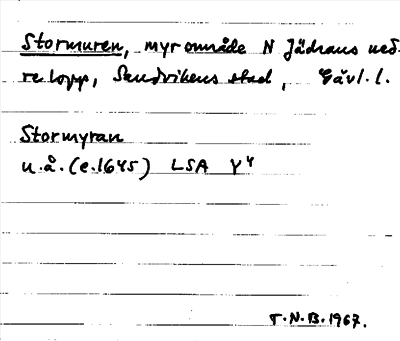 Stormuren, myrområde N Jädrans ned-
re lopp, Sandvikens stad, Gävl. l.
Stormyran
u.å. (e.1645) LSA Y 4
T.N.B. 1967.